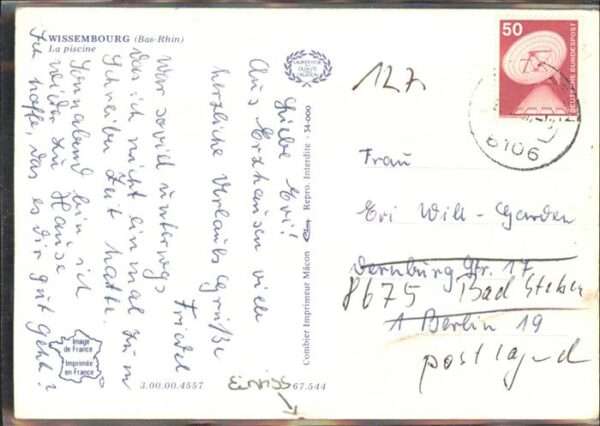 WISSEMBOURG (Bas-Rhin)
La piscine
Liebe Evi!
Aus Erzhausen viele
herzliche Urlaubsgrüße
Friedel
War soviel unterwegs
das ich nicht einmal zum
Schreiben Zeit hatte.
Sonnabend bin ich
wieder zu Hause
Ich hoffe, das es dir gut geht?
Image
de France
Imprimée
en France
3.00.00.4557
67.544
Combier Imprimeur Mâcon
Repro. Interdite - 34-000
127
50
DEUTSCHE BUNDESPOST
6106
Frau
Evi Will-Garden
Dernburg Str. 17
8675 Bad Steben
1 Berlin 19
postlagernd
Einriss